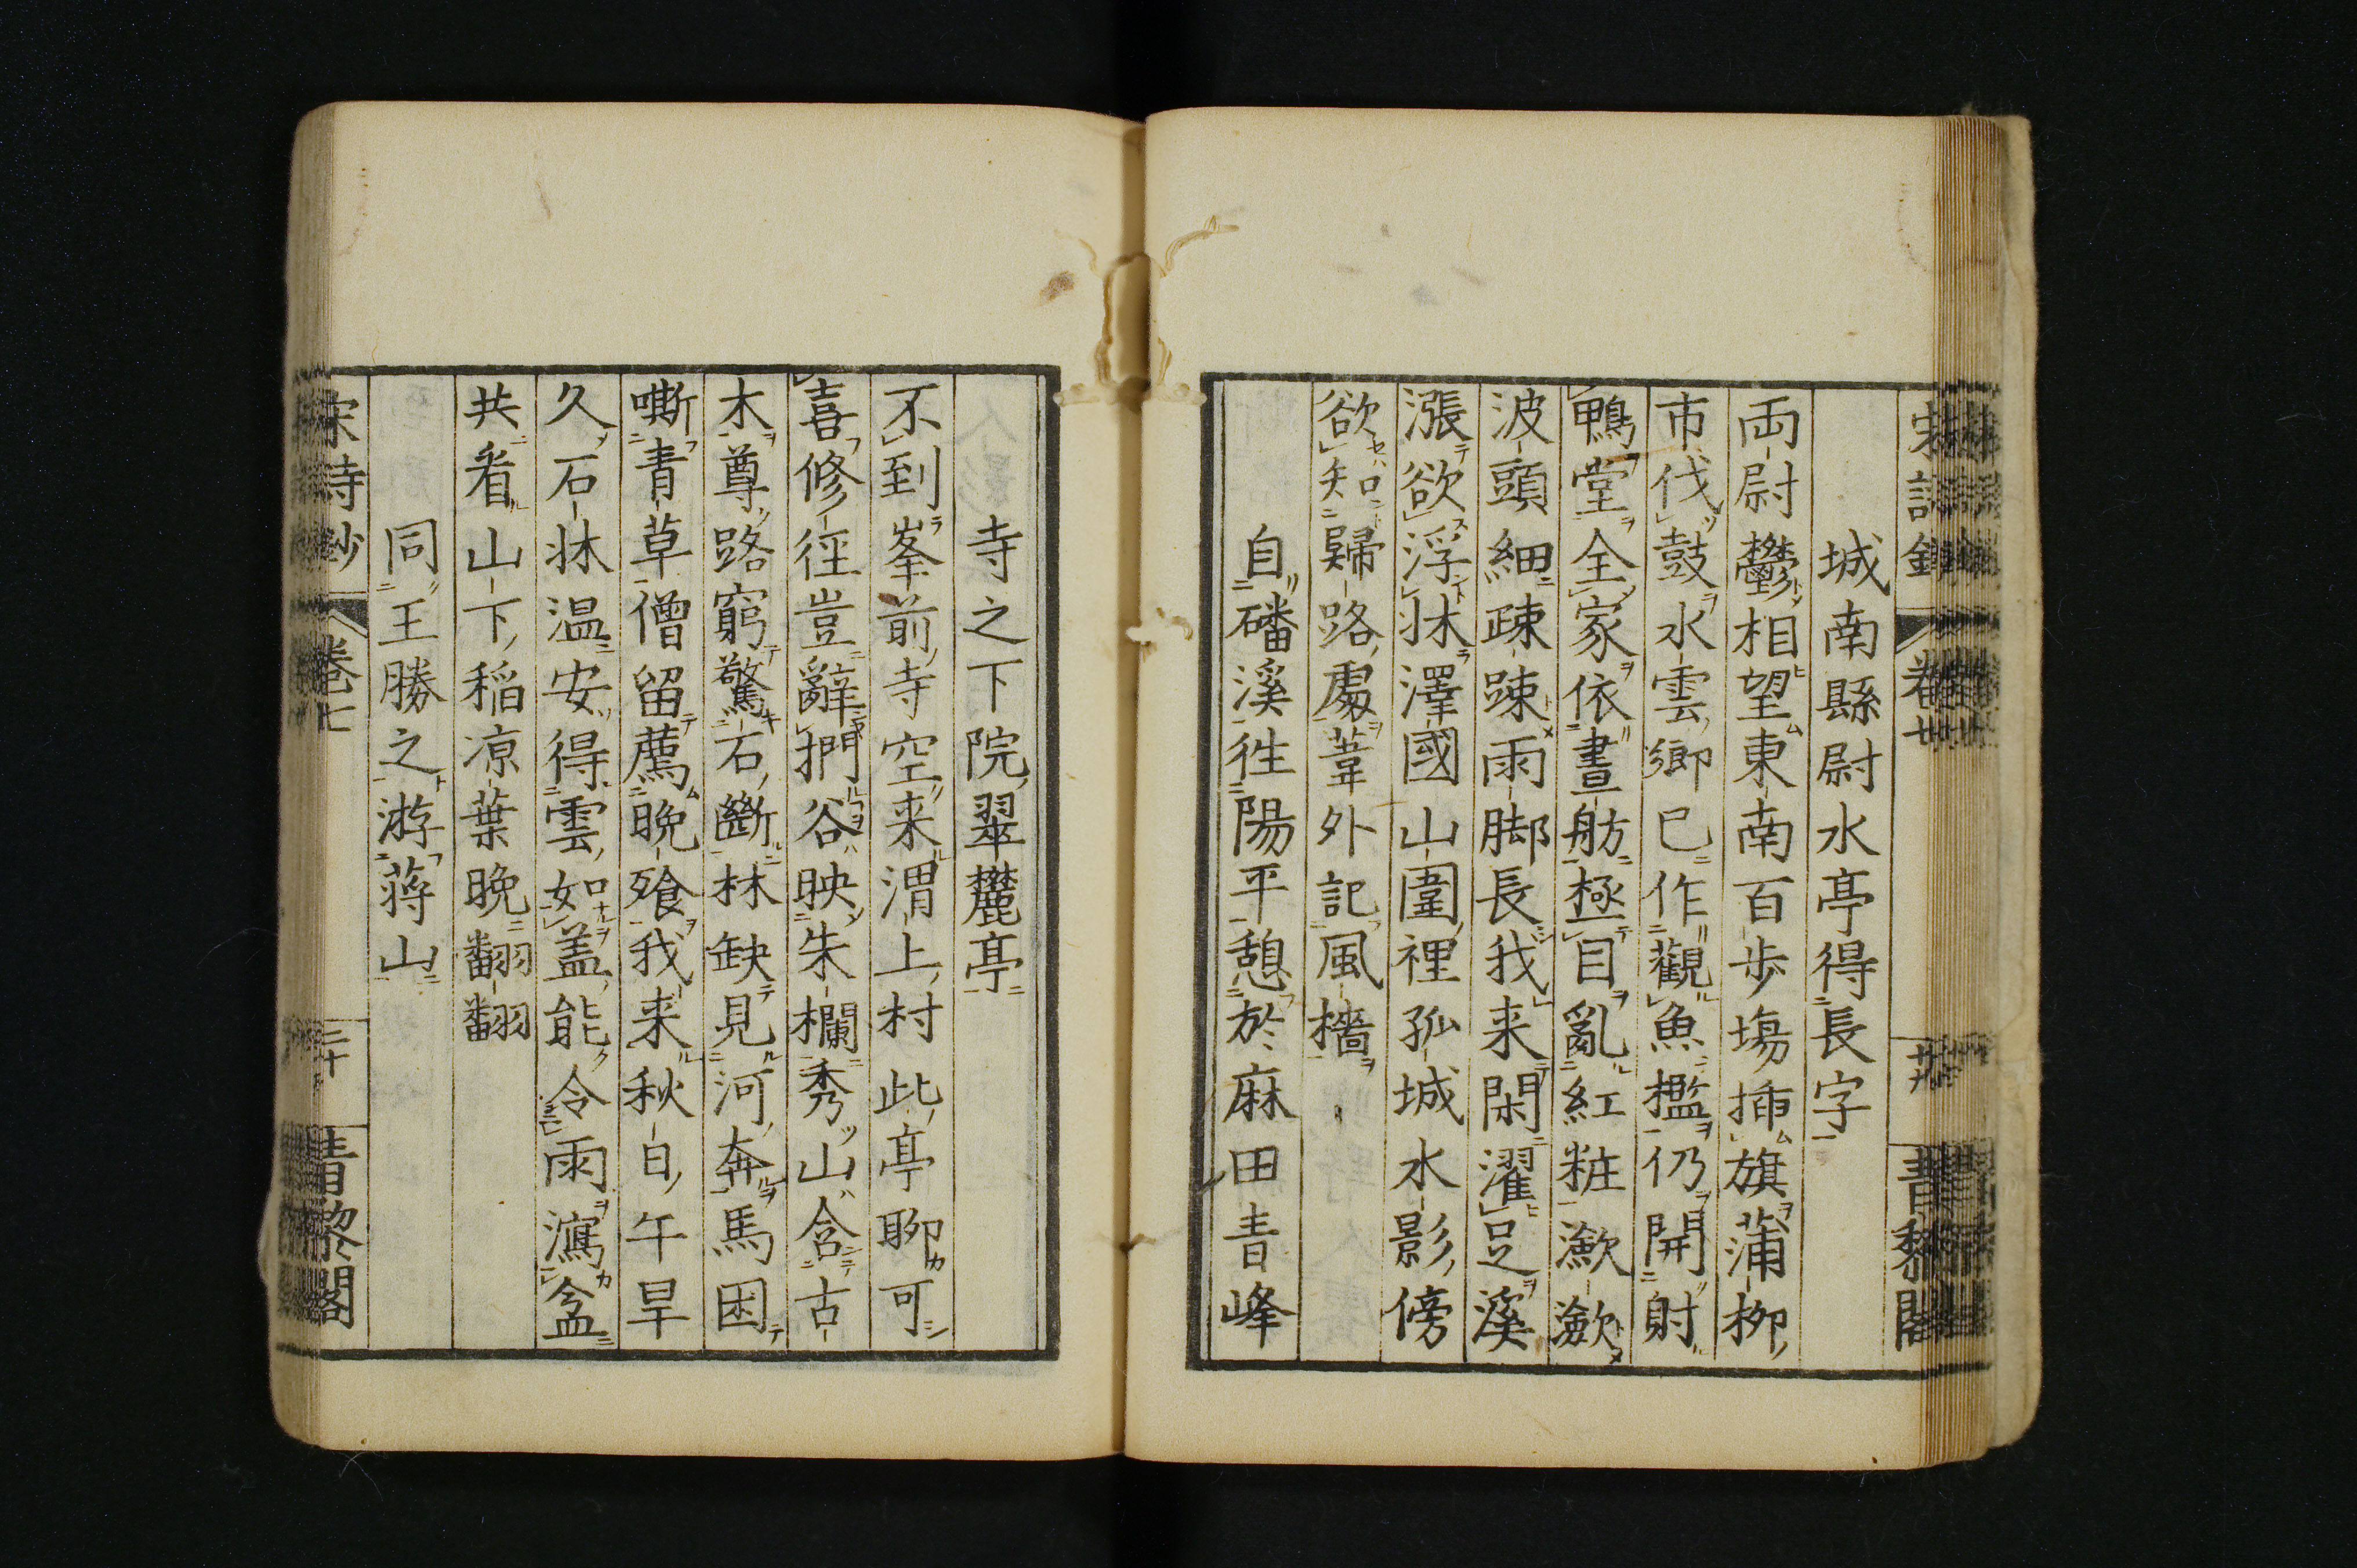 城南縣尉水亭得長字
両尉鬱相望東南百歩塲揷旗蒲柳
市伐鼓水雲鄉已作觀魚檻仍開射
鴨堂全家依畫舫極目亂紅粧瀲瀲
波頭細疎疎雨脚長我来閑濯足溪
漲欲浮牀澤國山圍裡孤城水影傍
欲知歸路處葦外記風檣
自磻溪徃陽平憩於麻田青峰
寺之下院翠麓亭
不到峯前寺空来渭上村此亭聊可
喜修徑豈辭捫谷映朱欄秀山含古
木尊路窮驚石斷林缺見河奔馬困
嘶青草僧留薦晚飱我来秋日午旱
久石牀温安得雲如盖能令雨瀉盆
共看山下稲凉葉晚翻翻
同王勝之游蔣山
宋詩鈔
巻七
三十
青黎閣